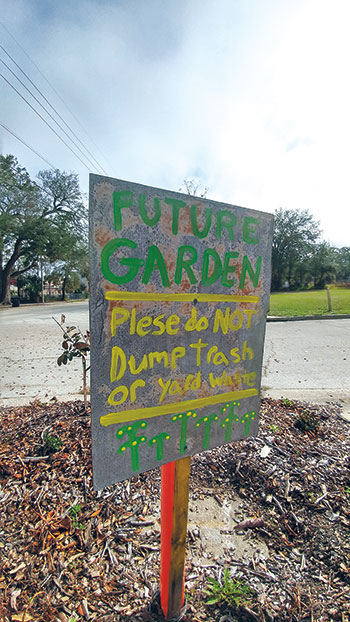 FUTURE
GARDEN
Plese do NOT
Dump trash
or yard waste